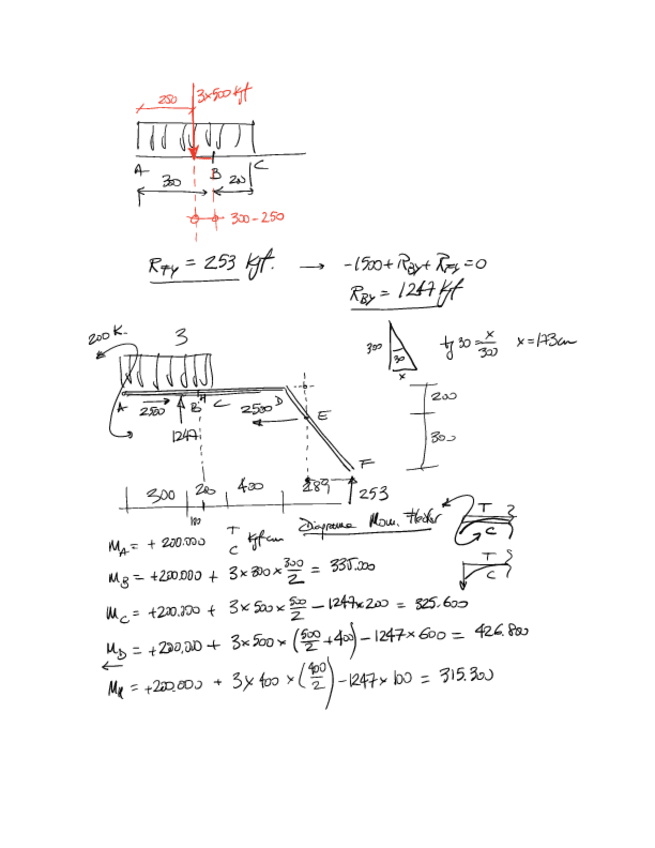 250 3×500 kgf
A B C
300 200
300-250
RFy = 253 kgf. → -1500 + RBy + RFy = 0
RBy = 1247 kgf
200 K. 3
300 30 x tg 30 = x/300 x = 173 cm
200
A 2500 B H C 2500 D E
1247
300
F
300 200 400 289 253
100
Diagrama Mom. Flector
T C
T C
MA = +200.000 T C kgf cm
MB = +200.000 + 3×300×300/2 = 335.000
MC = +200.000 + 3×500×500/2 - 1247×200 = 325.600
MD = +200.000 + 3×500×(500/2+400) - 1247×600 = 426.800
←
MH = +200.000 + 3×400×(400/2) - 1247×100 = 315.300